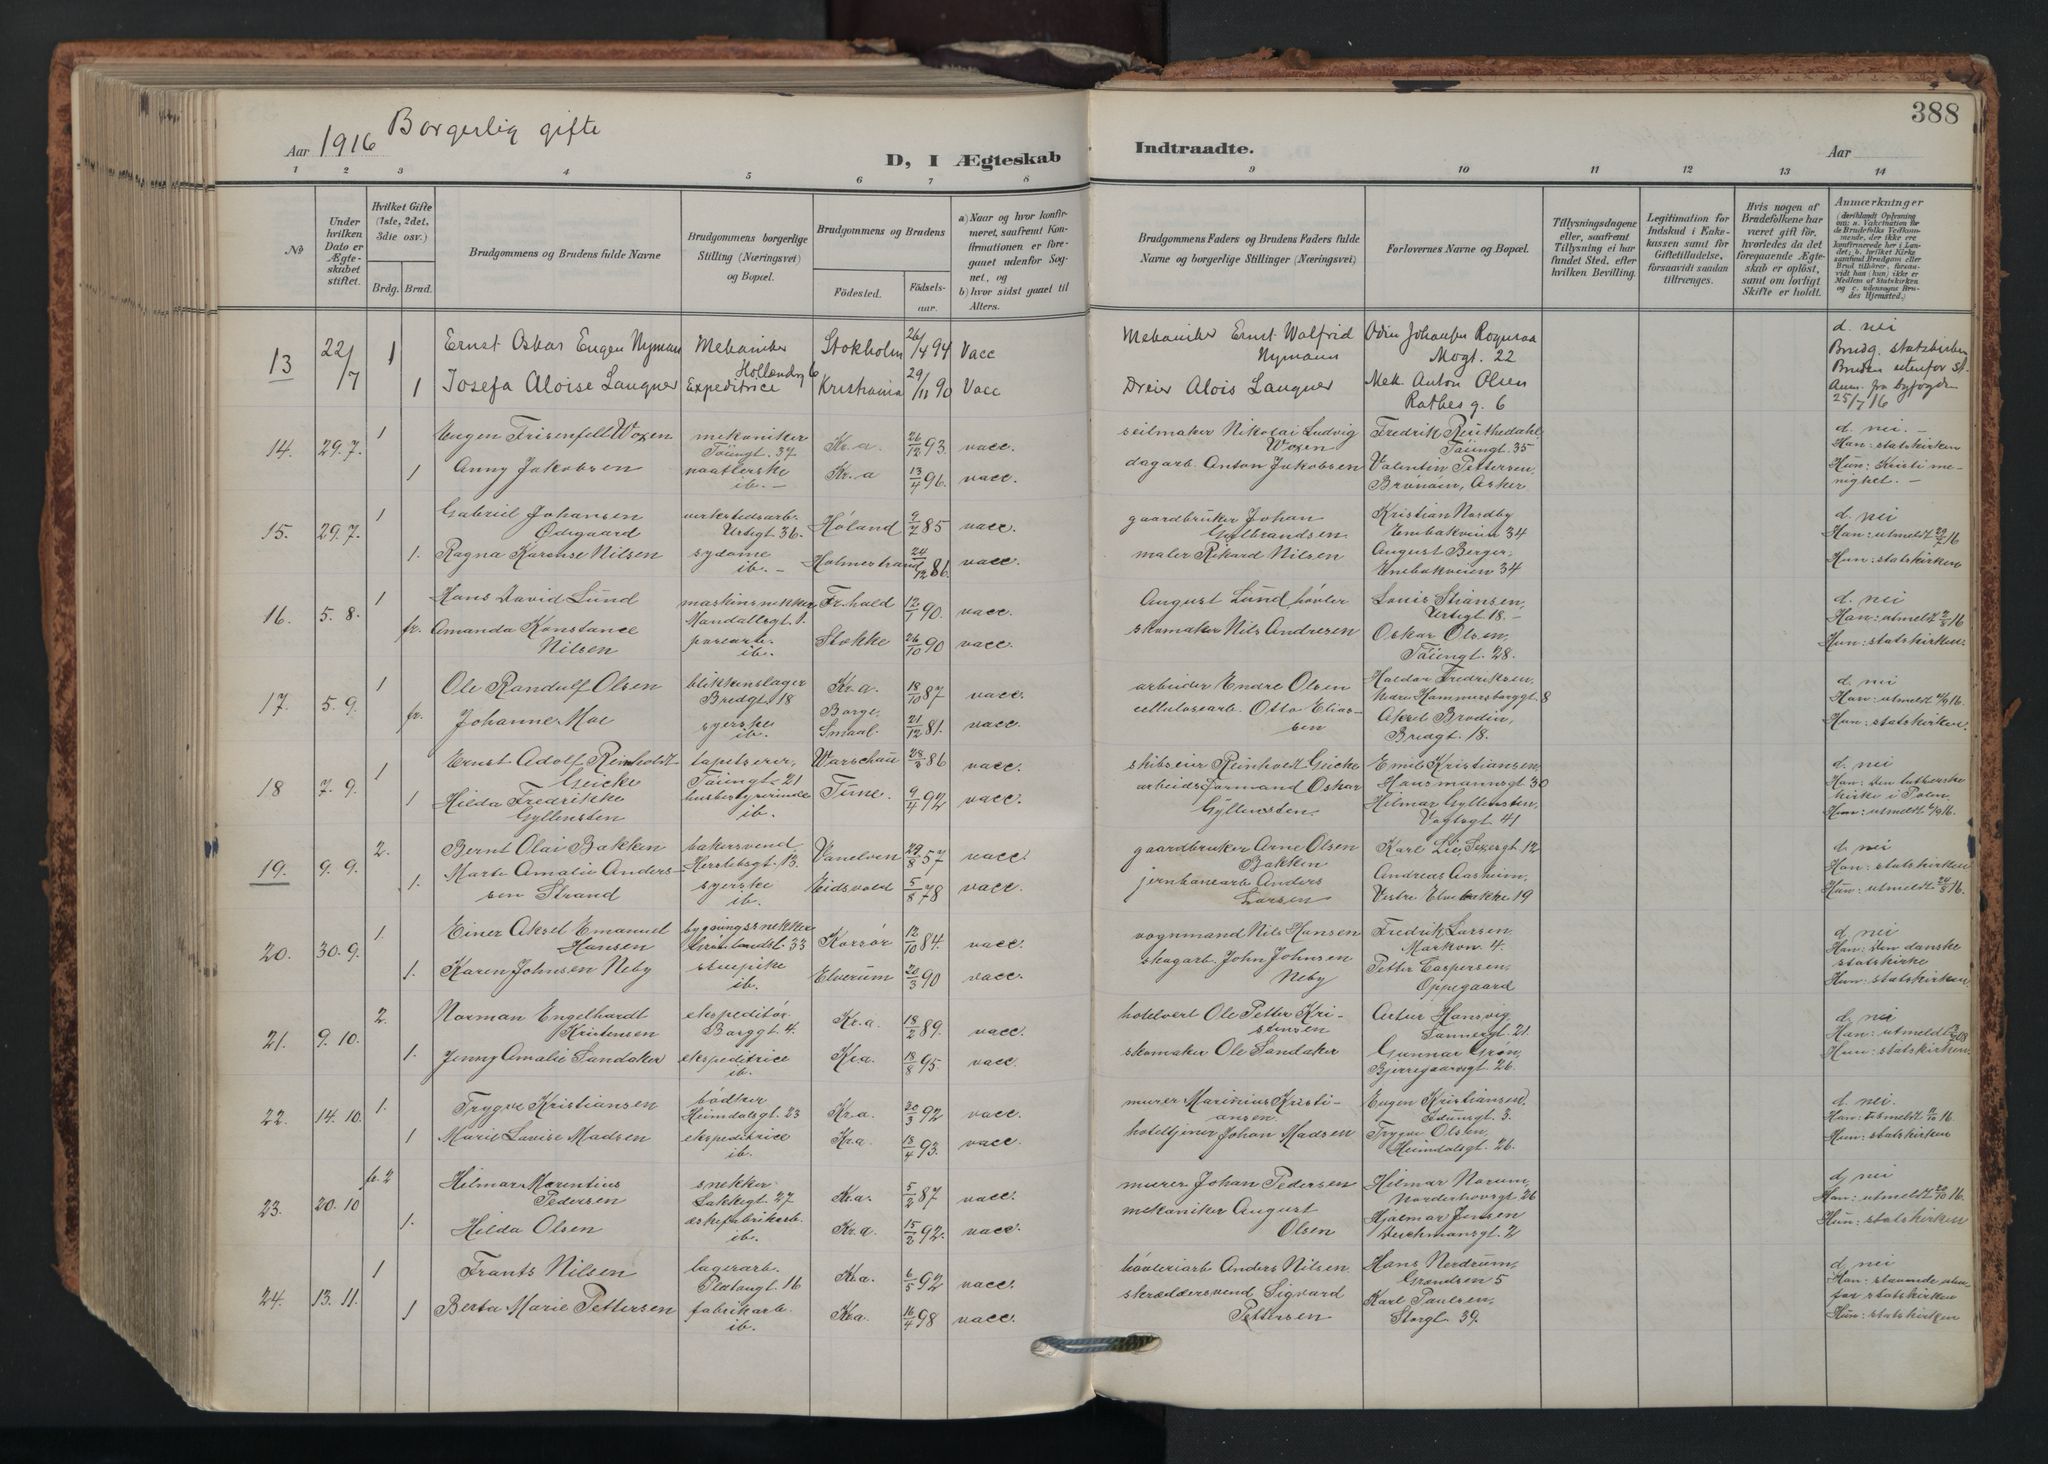 388
Aar 1916 Borgerlig gifte
D, I Ægteskab Indtraadte. Aar
1 2 3 4 5 6 7 8 9 10 11 12 13 14
No
Under hvilken Dato er Ægteskabet stiftet.
Hvilket Gifte (1ste, 2det, 3die osv.)
Brdg. Brud.
Brudgommens og Brudens fulde Navne
Brudgommens borgerlige Stilling (Næringsvei) og Bopæl.
Brudgommens og Brudens
Födested. Födselsaar.
a) Naar og hvor konfirmeret, saafremt Konfirmationen er foregaaet udenfor Sognet, og
b) hvor sidst gaaet til Alters.
Brudgommens Faders og Brudens Faders fulde Navne og borgerlige Stillinger (Næringsvei)
Forlovernes Navne og Bopæl.
Tillysningsdagene eller, saafremt Tillysning ei har fundet Sted, efter hvilken Bevilling.
Legitimation for Indskud i Enkekassen samt for Giftetilladelse, forsaavidt saadan tiltrænges.
Hvis nogen af Brudefolkene har været gift för, hvorledes da det foregaaende Ægteskab er oplöst, samt om lovligt Skifte er holdt.
Anmærkninger
13 22/7 1 Ernst Oskar Eugen Nyman Mekaniker Stokholm 26/4 94 Vacc Mekaniker Ernst Walfrid Nymann Odin Johansen Mogt. 22 d. nei
Hollendg 6
1 Josefa Aloise Laugner Expeditrice Kristiania 29/11 90 Vacc Dreier Alois Laugner Mek. Anton Olsen Rathes g. 6 Bruden utenfor st. Anm. fra byfogden 25/7 16
14. 29.7. 1 Eugen Frisenfelt Woxen mekaniker Töiengt. 37 Kr.a. 26/12 93. vacc. seilmaker Nikolai Ludvig Woxen Fredrik Töiengt. 35 d. nei. Han: statskirken
1 Anny Jakobsen ib. Kr.a 13/4 96. vacc. dagarb. Anton Jakobsen Valentin Pettersen, Asker Hun: Kristi menighet.
15. 29.7. 1 Gabriel Johansen Ødegaard verkstedsarb. Urtegt 36. Høland 9/7 85 vacc. gaardbruker Johan Gulbrandsen Kristian Nordby Enebakveien 34 d. nei Han: utmeldt 29/7 16
1. Ragna Karense Nilsen sydame ib. Holmestrand 24/12 86. vacc. maler Rikard Nilsen August Berger, Enebakveien 34 Hun: statskirken
16. 5.8. 1 Hans David Lund maskinsnekker Mandallsgt. 1. Fr.hald 12/1 90. vacc. August Lund høvler Louis Stiansen, Urtegt 18. d. nei Han: utmeldt 2/8 16
fr. Amanda Konstance Nilsen ib. Stokke 26/10 90 vacc. skomaker Nils Andresen Oskar Olsen, Töiengt. 28. Hun: statskirken
17. 5.9. 1 Ole Randulf Olsen blikkenslager Bredgt 18 Kr.a. 18/10 87 vacc. arbeider Endre Olsen Haldor Fredriksen, Nedre Hammersborggt 8 d. nei
fr. Johanne Moe syerske ib. Borge, Smaal. 21/12 81. vacc. cellulosearb. Otto Eliassen Aksel Brodin, Bredgt. 18. Hun: statskirken
18 7.9. 1 Ernst Adolf Reinholdt Geicke tapetserer, Töiengt. 21 Warschau 28/3 86 vacc. Reinholdt Geicke Emil Kristiansen, Hausmannsgt 30 d. nei Han: den lutherske kirke i Polen
1 Hilda Fredrikke Gyllensten husbestyrerinde ib. Tune. 9/4 92 vacc. arbeidsformand Oskar Gyllensten. Hilmar Gyllensten, Vogtsgt 41 Hun: utmeldt 6/9 16.
19. 9.9. 2. Bernt Olai Bakken bakersvend Herslebsgt. 13. Vanelven 29/8 57 vacc. gaardbruker Arne Olsen Bakken Karl Lie, 12 d. nei Han: statskirken
1. Marte Amalie Anderssen Strand syerske ib. Eidsvold 5/8 78 vacc. jernbanearb Anders Larsen Andreas Aasheim, Vestre Elvebakke 19 Hun: utmeldt 24/8 16.
20. 30.9. 1. Einer Aksel Emanuel Hansen bygningssnekker Grønlandsl. 33 Korsör 12/10 84. vacc. vognmand Nils Hansen Fredrik Larsen Markvn 4. d. nei Han: Den danske statskirke
1. Karen Johnsen Neby stuepike ib. Elverum 20/3 90 vacc. skogarb. John Johnsen Neby Petter Caspersen, Oppegaard Hun: statskirken
21. 9.10. 2. Norman Engelhardt Kristensen ekspeditör Borggt. 4. Kr.a. 18/2 89. vacc. hotelvert Ole Petter Kristensen Artur Hansvig, Sannergt. 21. d. nei
1. Jenny Amalie Sandaker ekspeditrice ib. Kr.a. 18/8 95. vacc. skomaker Ole Sandaker Gunnar Grøn, Bjerregaardsgt 26. Hun: statskirken
22. 14.10. 1. Trygve Kristiansen bødker Heimdalsgt. 23 Kr.a. 20/3 92 vacc. murer Marinius Kristiansen Eugen Kristiansen, Idunsgt. 3. d. nei. Han: utmeldt 9/10 16.
1 Marie Louise Madsen ekspeditrice ib. Kr.a. 18/4 93. vacc. hoteltjener Johan Madsen Trygve Olsen, Heimdalsgt. 26. Hun: statskirken
23. 20.10 fr. 2 Hilmar Marentius Pedersen snekker Lakkegt. 27 Kr.a. 5/2 87 vacc. murer Johan Pedersen Hilmar Norum, Norderhovsgt 26 d, nei Han: utmeldt 20/10 16.
1. Hilda Olsen æskefabrikarb. ib. Kr.a. 15/2 92. vacc. mekaniker August Olsen Hjalmar Jensen Deichmansgt. 2 Hun: statskirken
24. 13.11. 1 Frants Nilsen lagerarb. Platougt 16 Kr.a. 6/5 92 vacc. høvleriarb Anders Nilsen. Hans Nerdrum, Grændsen 5 d, nei Han: staaende utenfor statskirken
1 Berta Marie Pettersen fabrikarb. ib. Kr.a. 16/4 98 vacc. skræddersvend Sigvard Pettersen Karl Paulsen, Storgt. 39. Hun: statskirken